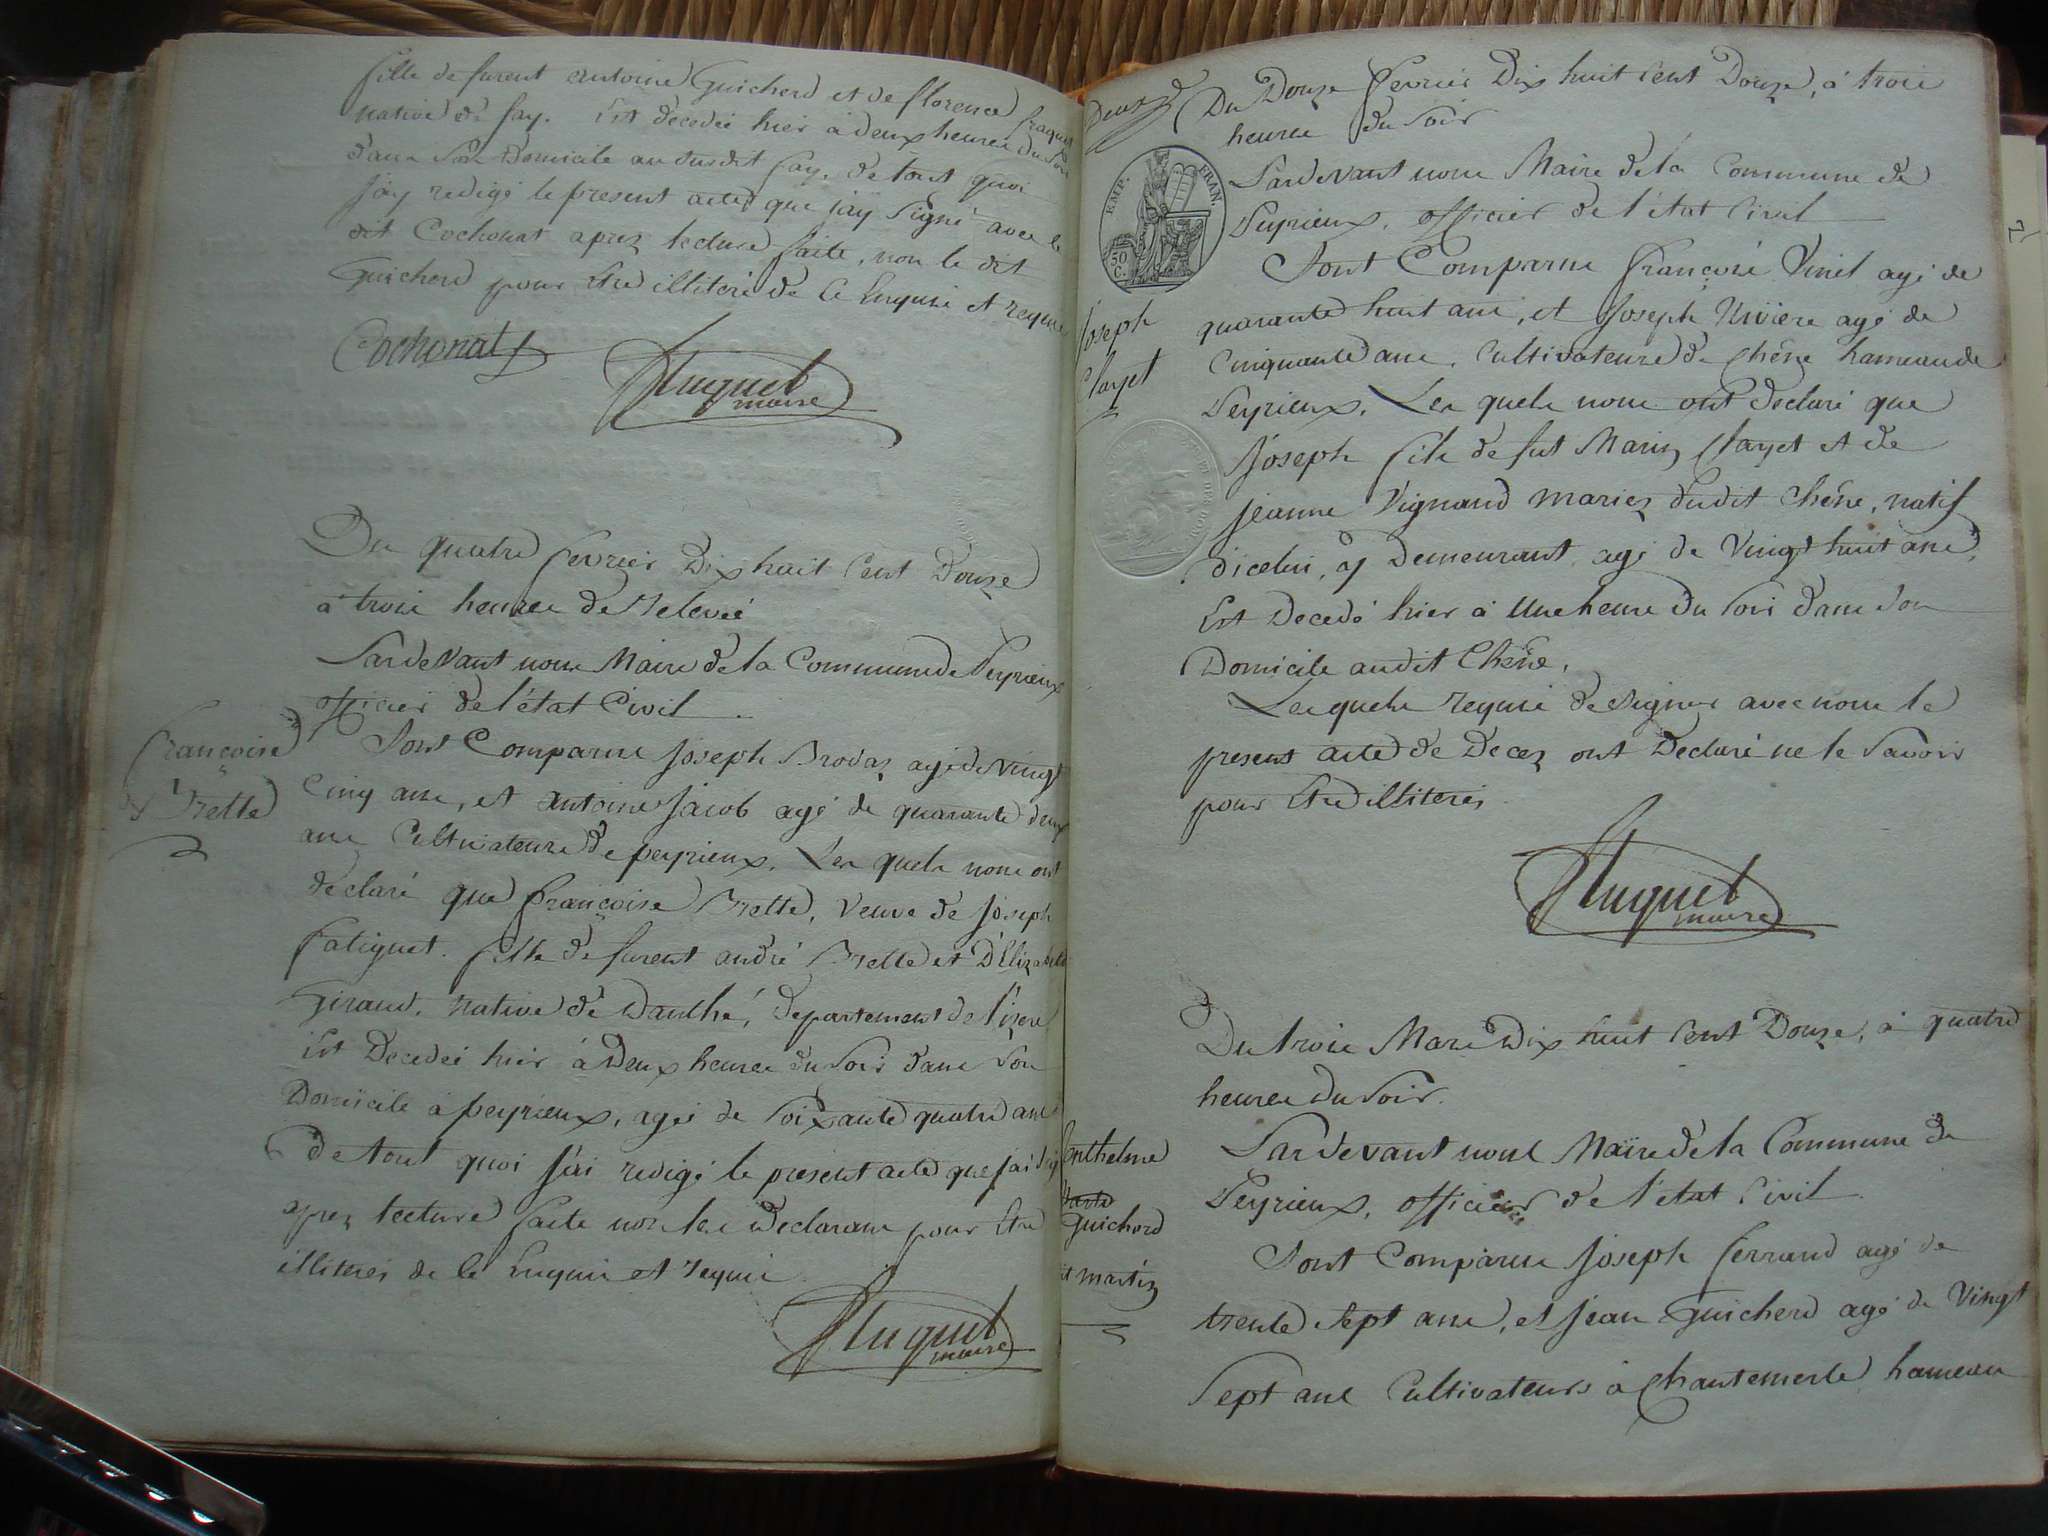 fille de furent antoine Guicherd et de florence fraquet
native de fay. Est décedée hier à deux heures du soir
dans son Domicile au susdit fay, de tout quoi
j'ay redigé le present acte que j'ay signé avec le
dit Cochonat aprez lecture faite, non le dit
Guicherd pour etre illiteré de ce Enquis et requis
Cochonat
Huguet
maire
Du quatre fevrier Dix huit Cent Douze
à trois heures de Relevée
Pardevant nous Maire de la Commune de Peyrieux
officier de l'état Civil
Françoise
Brette
Sont Comparus Joseph Brodaz agé de vingt
Cinq ans, et antoine Jacob agé de quarante deux
ans Cultivateurs de peyrieux. Les quels nous ont
déclaré que françoise Brette, veuve de Joseph
fatiguet. fille de furent andré Brette et D'Elizabeth
Giraud. native de departement de l'izere
Est Decedée hier à Deux heures du Soir dans Son
Domicile à peyrieux, agée de Soixante quatre ans
De tout quoi J'ai redigé le présent acte que j'ai signé
aprez lecture faite non les Declarans pour Etre
illiterés de ce Enquis et requis
Huguet
maire
Du Douze fevrier Dix huit Cent Douze, à trois
heures du Soir
EMP. FRAN.
50 C.
Pardevant nous Maire de la Commune de
Peyrieux, officier de l'état Civil
Sont Comparus françois Vinet agé de
Joseph
Clayet
quarante huit ans, et Joseph Rivière agé de
Cinquante ans, Cultivateurs de Chêne hameau de
Peyrieux. Les quels nous ont Declaré que
Joseph fils de fut Marin Clayet et de
Jeanne Vignaud mariez dudit Chêne, natif
dicelui, y Demeurant, agé de Vingt huit ans,
Est Decedé hier à Une heure du Soir dans Son
Domicile audit Chêne.
Les quels requis de Signer avec nous le
present acte de Decez ont Declaré ne le Savoir
pour Etre illiterés
Huguet
maire
Du trois Mars Dix huit Cent Douze, à quatre
heures du Soir.
Pardevant nous Maire de la Commune de
Peyrieux, officier de l'état Civil
Anthelme
Guicherd
dit martin
Sont Comparus Joseph ferrand agé de
trente Sept ans, et Jean Guicherd agé de Vingt
Sept ans Cultivateurs à Chantemerle hameau